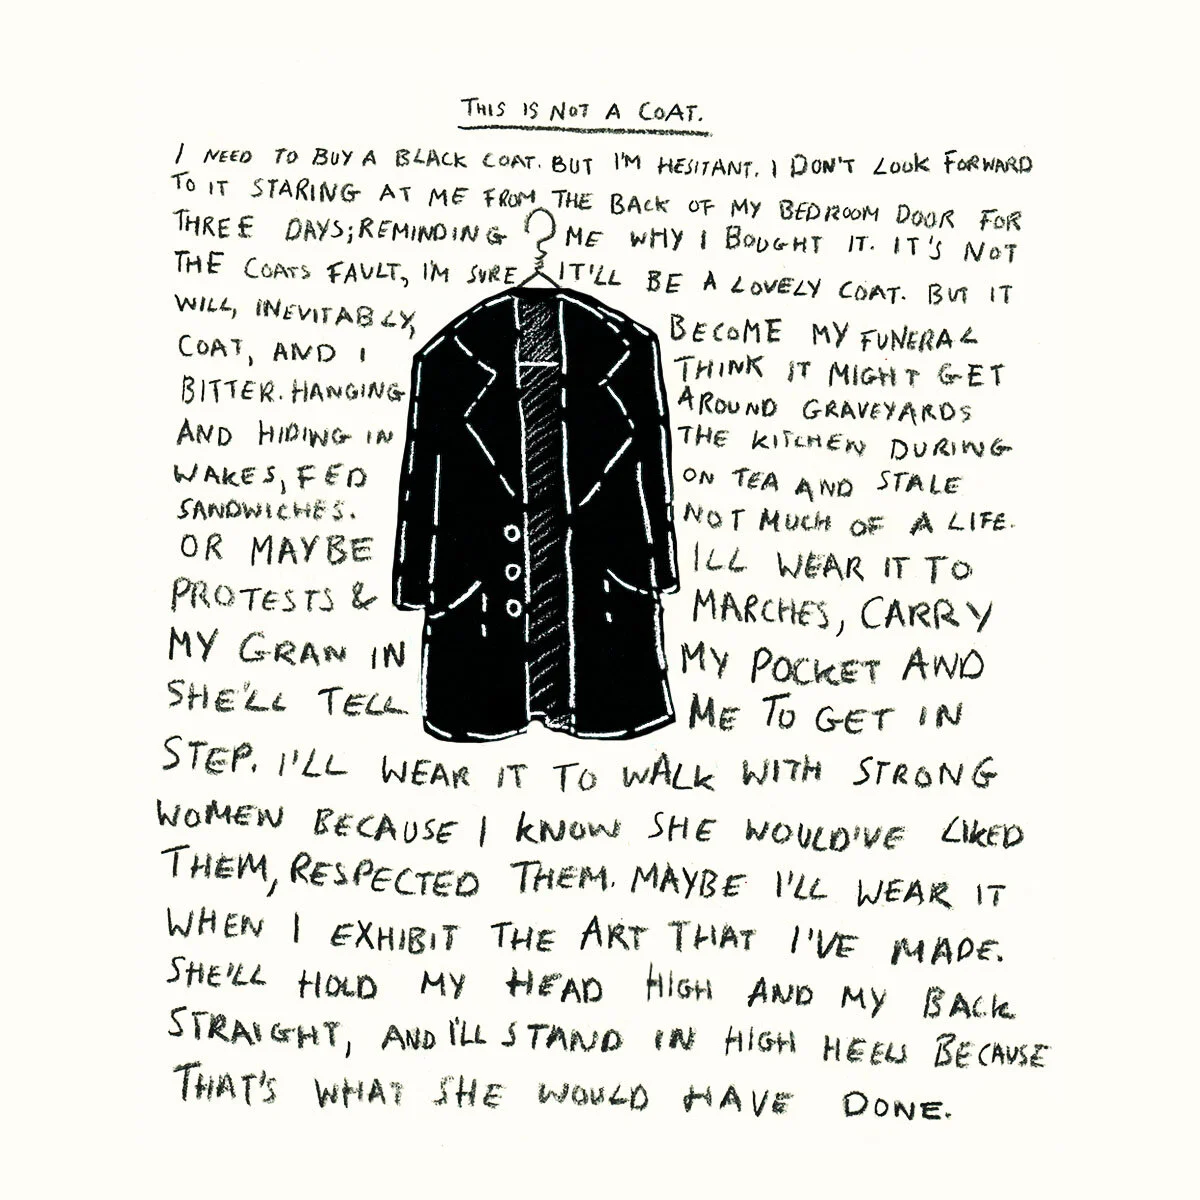 THIS IS NOT A COAT.
I NEED TO BUY A BLACK COAT. BUT I'M HESITANT. I DON'T LOOK FORWARD
TO IT STARING AT ME FROM THE BACK OF MY BEDROOM DOOR FOR
THREE DAYS; REMINDING ME WHY I BOUGHT IT. IT'S NOT
THE COATS FAULT, I'M SURE IT'LL BE A LOVELY COAT. BUT IT
WILL, INEVITABLY, BECOME MY FUNERAL
COAT, AND I THINK IT MIGHT GET
BITTER. HANGING AROUND GRAVEYARDS
AND HIDING IN THE KITCHEN DURING
WAKES, FED ON TEA AND STALE
SANDWICHES. NOT MUCH OF A LIFE.
OR MAYBE ILL WEAR IT TO
PROTESTS & MARCHES, CARRY
MY GRAN IN MY POCKET AND
SHE'LL TELL ME TO GET IN
STEP. I'LL WEAR IT TO WALK WITH STRONG
WOMEN BECAUSE I KNOW SHE WOULD'VE LIKED
THEM, RESPECTED THEM. MAYBE I'LL WEAR IT
WHEN I EXHIBIT THE ART THAT I'VE MADE.
SHE'LL HOLD MY HEAD HIGH AND MY BACK
STRAIGHT, AND I'LL STAND IN HIGH HEELS BECAUSE
THAT'S WHAT SHE WOULD HAVE DONE.